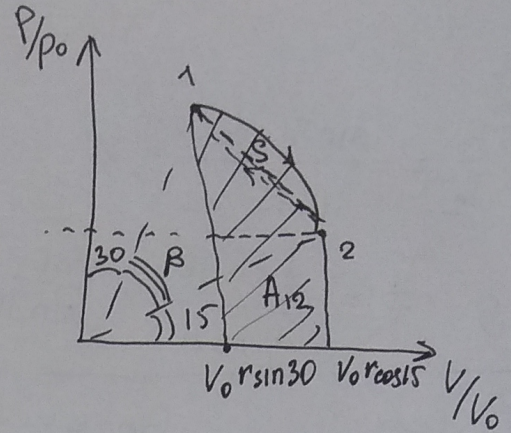 P/p₀
1
S
2
30 β
15
A₁₂
V₀ r sin30 V₀ r cos15 V/V₀